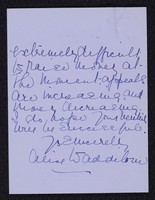 extremely difficult
to raise money at
the moment, appeals
are increasing and
money decreasing
I do hope your
will be successful.
Yours sincerely
Alice